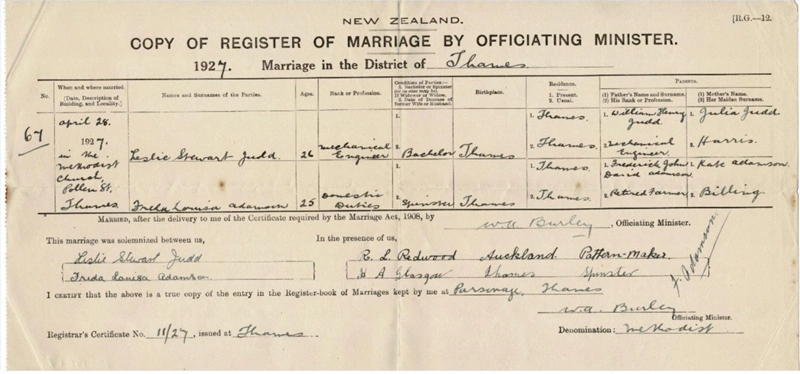 NEW ZEALAND.
[R.G.—12.
COPY OF REGISTER OF MARRIAGE BY OFFICIATING MINISTER.
1927. Marriage in the District of Thames
No.
When and where married.
[Date, Description of Building, and Locality.]
Names and Surnames of the Parties.
Ages.
Rank or Profession.
Condition of Parties:—
1. Bachelor or Spinster
2. Date of Decease of former Wife or Husband.
Birthplace.
Residence.
1. Present.
2. Usual.
PARENTS.
(1) Father's Name and Surname.
(2) His Rank or Profession.
(1) Mother's Name.
(2) Her Maiden Surname.
67
April 28.
1927.
in the
Methodist
Church,
Pollen St.
Thames
Leslie Stewart Judd.
26
Mechanical
Engineer
1.
2. Bachelor
Thames
1. Thames.
2. Thames.
1. William Henry
Judd.
2. Mechanical
Engineer
1. Julia Judd
2. Harris.
Freda Louisa Adamson
25
Domestic
Duties
1.
2. Spinster
Thames
1. Thames.
2. Thames.
1. Frederick John
David Adamson.
2. Retired Farmer
1. Kate Adamson.
2. Billing
MARRIED, after the delivery to me of the Certificate required by the Marriage Act, 1908, by W.A. Burley, Officiating Minister.
This marriage was solemnized between us,
Leslie Stewart Judd
Freda Louisa Adamson.
In the presence of us,
R. L. Redwood Auckland Pattern-Maker.
A Glasgow Thames Spinster
F. Adamson.
I CERTIFY that the above is a true copy of the entry in the Register-book of Marriages kept by me at Parsonage, Thames
W.A. Burley
Officiating Minister.
Registrar's Certificate No. 11/27, issued at Thames.
Denomination: Methodist